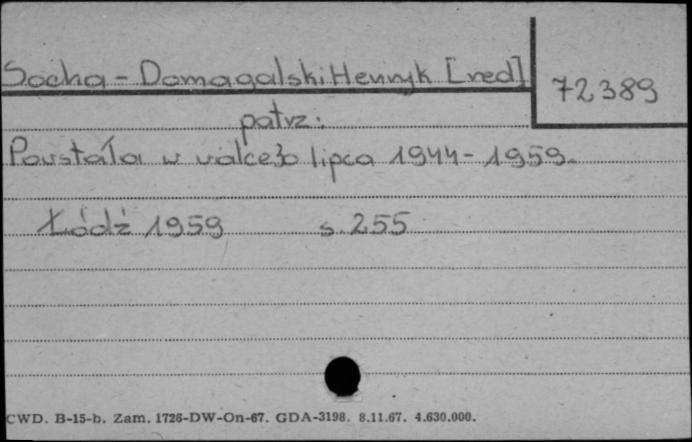 Socha - Domagalski Henryk [red]
72389
patrz:
Powstała w walce 30 lipca 1944 - 1959.
Łódź 1959 s. 255
CWD. B-15-b. Zam. 1726-DW-On-67. GDA-3198. 8.11.67. 4.630.000.